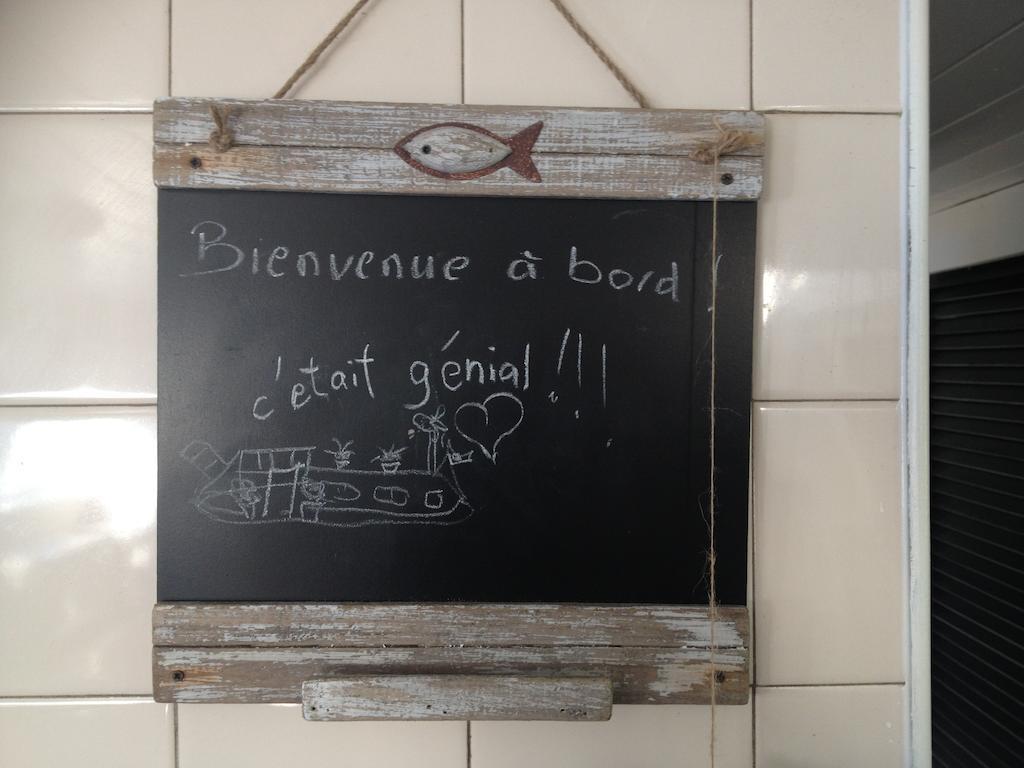 Bienvenue à bord !
c'etait génial !!!